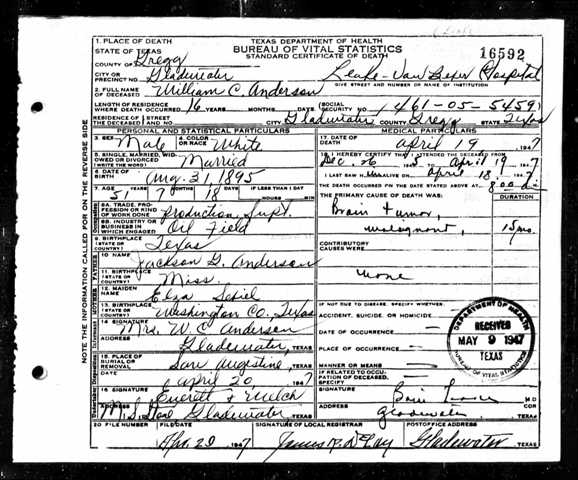 TEXAS DEPARTMENT OF HEALTH
BUREAU OF VITAL STATISTICS
STANDARD CERTIFICATE OF DEATH
16592
1. PLACE OF DEATH
STATE OF TEXAS
COUNTY OF Gregg
CITY OR PRECINCT NO. Gladewater
Hospital
GIVE STREET AND NUMBER OR NAME OF INSTITUTION
2. FULL NAME OF DECEASED William C. Anderson
LENGTH OF RESIDENCE WHERE DEATH OCCURRED 16 YEARS MONTHS DAYS
(SOCIAL SECURITY NO. 461-05-5459)
RESIDENCE OF THE DECEASED STREET AND NO. CITY Gladewater COUNTY Gregg STATE Texas
PERSONAL AND STATISTICAL PARTICULARS
MEDICAL PARTICULARS
3. SEX Male
4. COLOR OR RACE White
5. SINGLE, MARRIED, WIDOWED OR DIVORCED (WRITE THE WORD) Married
6. DATE OF BIRTH Aug. 31, 1895
7. AGE YEARS 51 MONTHS 7 DAYS 18 IF LESS THAN 1 DAY HOURS MIN
8A. TRADE, PROFESSION OR KIND OF WORK DONE Production Supt.
8B. INDUSTRY OR BUSINESS IN WHICH ENGAGED Oil Field
9. BIRTHPLACE (STATE OR COUNTRY) Texas
10. NAME Jackson G. Anderson
11. BIRTHPLACE (STATE OR COUNTRY) Miss.
12. MAIDEN NAME Elza
13. BIRTHPLACE (STATE OR COUNTRY) Washington Co. Texas
14. SIGNATURE Mrs. W. C. Anderson
ADDRESS Gladewater, TEXAS
15. PLACE OF BURIAL OR REMOVAL San Augustine, TEXAS
DATE April 20, 1947
16. SIGNATURE Everett &
ADDRESS Gladewater, TEXAS
17. DATE OF DEATH April 19 1947
18. I HEREBY CERTIFY THAT I ATTENDED THE DECEASED FROM
Dec. 26 TO April 19 1947
I LAST SAW H ALIVE ON April 18 1947
THE DEATH OCCURRED ON THE DATE STATED ABOVE AT 8:00
THE PRIMARY CAUSE OF DEATH WAS:
DURATION
Brain tumor,
malignant,
CONTRIBUTORY CAUSES WERE
none
IF NOT DUE TO DISEASE, SPECIFY WHETHER:
ACCIDENT, SUICIDE, OR HOMICIDE
DATE OF OCCURRENCE
PLACE OF OCCURRENCE
MANNER OR MEANS
IF RELATED TO OCCUPATION OF DECEASED, SPECIFY
SIGNATURE M D
ADDRESS Gladewater TEXAS
DEPARTMENT OF HEALTH
RECEIVED
MAY 9 1947
TEXAS
BUREAU OF VITAL STATISTICS
20 FILE NUMBER
FILE DATE Apr. 20 1947
SIGNATURE OF LOCAL REGISTRAR James
POSTOFFICE ADDRESS Gladewater TEXAS
NOTE THE INFORMATION CALLED FOR ON THE REVERSE SIDE